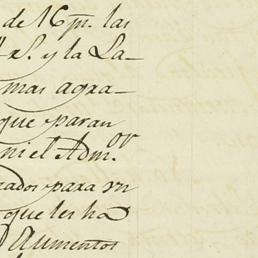 de 16 p.^m las
r.^s y la La-
mas agra-
que paran
ni el Adm.^or
rados para un
que les ha
Aumentos